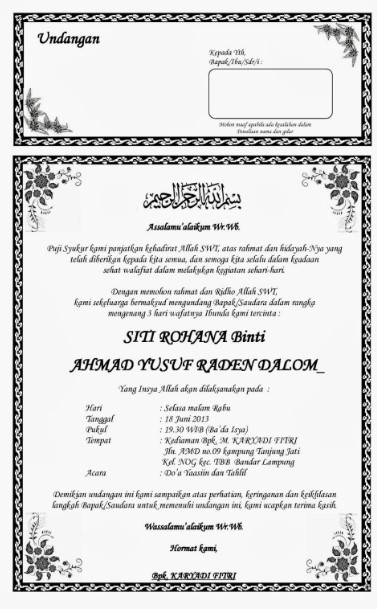 Undangan
Kepada Yth,
Bapak/Ibu/Sdr/i :
Mohon maaf apabila ada kesalahan dalam
Penulisan nama dan gelar
بسم الله الرحمن الرحيم
Assalamu'alaikum Wr.Wb.
Puji Syukur kami panjatkan kehadirat Allah SWT, atas rahmat dan hidayah-Nya yang
telah diberikan kepada kita semua, dan semoga kita selalu dalam keadaan
sehat walafiat dalam melakukan kegiatan sehari-hari.
Dengan memohon rahmat dan Ridho Allah SWT,
kami sekeluarga bermaksud mengundang Bapak/Saudara dalam rangka
mengenang 3 hari wafatnya Ibunda kami tercinta :
SITI ROHANA Binti
AHMAD YUSUF RADEN DALOM_
Yang Insya Allah akan dilaksanakan pada :
Hari : Selasa malam Rabu
Tanggal : 18 Juni 2013
Pukul : 19.30 WIB (Ba'da Isya)
Tempat : Kediaman Bpk. M. KARYADI FITRI
Jln. AMD no.09 kampung Tanjung Jati
Kel. NOG kec. TBB Bandar Lampung
Acara : Do'a Yaasiin dan Tahlil
Demikian undangan ini kami sampaikan atas perhatian, keringanan dan keikhlasan
langkah Bapak/Saudara untuk memenuhi undangan ini, kami ucapkan terima kasih.
Wassalamu'alaikum Wr.Wb.
Hormat kami,
Bpk. KARYADI FITRI